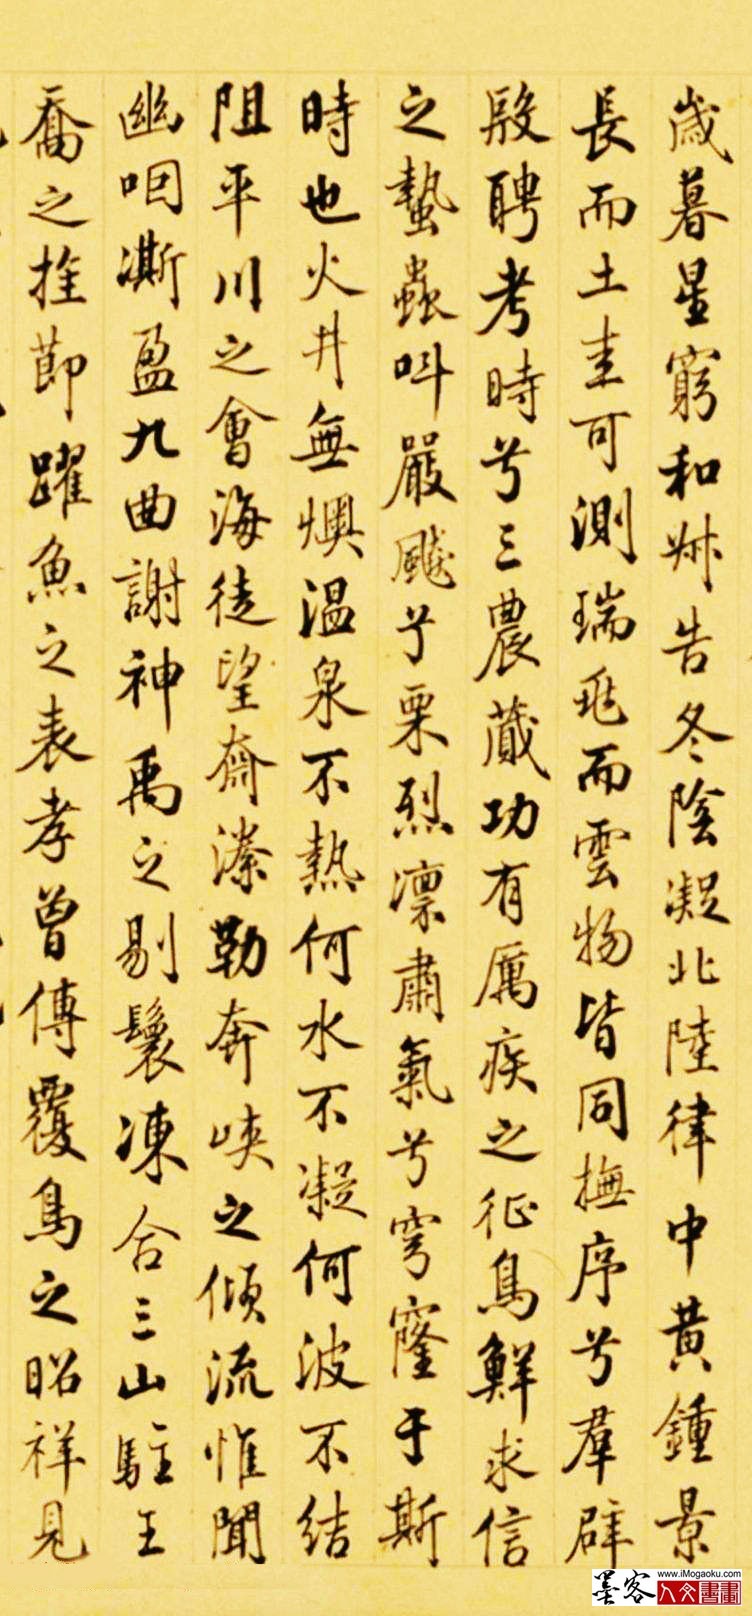 歲暮星窮和叔告冬陰凝北陸律中黃鍾景
長而土圭可測瑞飛而雲物皆同撫序兮羣辟
殷聘考時兮三農蕆功有厲疾之征鳥鮮求信
之蟄蟲叫嚴飈兮栗烈凛肅氣兮穹窿于斯
時也火井無燠温泉不熱何水不凝何波不結
阻平川之會海徒望勒奔峽之傾流惟聞
幽咽澌盈九曲謝神禹之剔鬟凍合三山駐王
喬之節躍魚之表孝曾傳覆鳥之昭祥見
墨客 人文書畫
www.iMogaoku.com